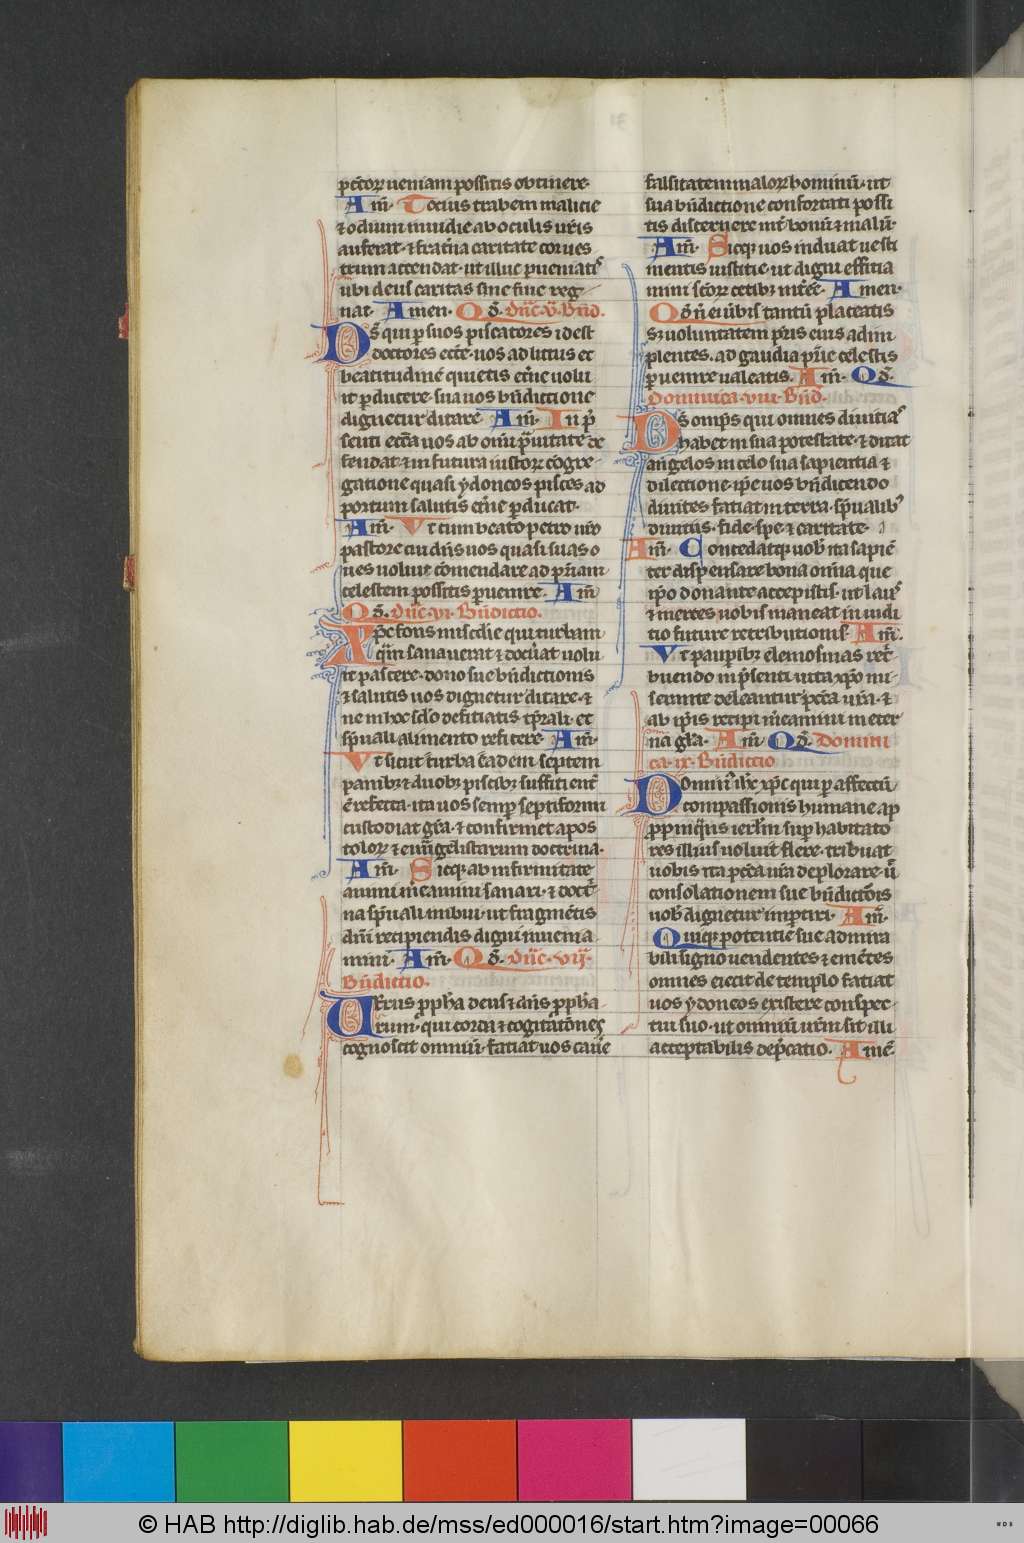 pctoꝝ ueniam possitis obtinere·
Am̅· Tocius trabem malicie
⁊ odium inuidie ab oculis uris
auferat· ⁊ frat̅na caritate cor ues
trum accendat· ut illuc ꝑueniatis
ubi deus caritas sine fine reg
nat· Amen· Quod̅· dn̅c· v· bn̅d.
Ds̅ qui ꝑ suos piscatores idest
doctores ecc̅e· uos ad litus et
beatitudine̅ quietis et̅ne uolu
it ꝑducere· sua uos bn̅dictione
dignetur ditare· Am̅· In p̅
senti ecc̅a uos ab om̅i p̅uitate de
fendat· ⁊ in futura iustoꝝ co̅gre
gatione quasi ydoneos pisces ad
portum salutis et̅ne ꝑducat·
Am̅· Vt cum beato petro uiro
pastore cui dn̅s uos quasi suas o
ues uoluit co̅mendare ad pr̅iam
celestem possitis ꝑuenire· Am̅
Qd̅· dn̅c· vi· bn̅dictio.
Xp̅e fons misc̅die qui turbam
q̅m sanauerat ⁊ docu̅at uolu
it pascere· dono sue bn̅dictionis
⁊ salutis uos dignetur ditare· ⁊
ne in hoc sc̅lo deficiatis· tp̅rali· et
sp̅uali alimento reficere· Am̅·
Vt sicut turba eadem septem
panibꝫ ⁊ duobꝫ piscibꝫ sufficient̅
e̅ refecta· ita uos semꝑ septiformi
custodiat gr̅a· ⁊ confirmet apos
toloꝝ ⁊ eua̅ngelistarum doctrina·
Am̅· Sicqꝫ ab infirmitate
animi ineamini sanari· ⁊ doct̅
na sp̅uali imbui· ut fragme̅tis
dn̅i recipiendis digni inuenia
mini· Am̅· Qd̅· dn̅c· vij·
Bn̅dictio.
Uerus ꝓph̅a deus ⁊ dn̅s ꝓpha̅
rum· qui corda ⁊ cogitat̅ones
cognoscit omniu̅· faciat uos caue̅
falsitatem maloꝝ hominu̅· ut
sua bn̅dictione confortati possi
tis discernere int̅ bonu̅ ⁊ malu̅·
Am̅· Sicqꝫ uos induat uesti
mentis iusticie· ut digni efficia
mini sc̅oꝝ cetibꝫ int̅e̅e̅· Amen·
Qd̅ n̅ ei u̅bis tantu̅ placeatis
sꝫ uoluntatem pr̅is eius adim
plentes· ad gaudia pr̅ie celestis
ꝑuenire ualeatis. Am̅· Qd̅·
Dominica· viii· bn̅d.
Ds̅ omp̅s qui omnes diuitias
habet in sua potestate· ⁊ ditat
angelos in celo sua sapientia ⁊
dilectione· ip̅e uos bn̅dicendo
diuites faciat in terra· sp̅ualibꝫ
diuiciis· fide· spe· ⁊ caritate·
Am̅· Concedatqꝫ uob̅ ita sapie̅
ter dispensare bona om̅ia que
ip̅o donante accepistis· ut laus
⁊ merces uobis maneat in iudi
cio future retributionis· Am̅.
Vt pauꝑibꝫ elemosinas ret̅
buendo in p̅senti uita xp̅o mi
serante deleantur pcc̅a ur̅a· ⁊
ab ip̅is recipi m̅eamini in eter
na gl̅a· Am̅· Qd̅· Domini
ca· ix· bn̅dictio
Dominus ih̅c xp̅c qui ꝑ affectu̅
compassionis humane ap
ꝓpinq̅ns ierl̅m suꝑ habitato
res illius uoluit flere· tribuat
uobis ita pcc̅a ur̅a deplorare· u̅
consolationem sue bn̅dictio̅is
uob̅ dignetur imꝑtiri· Am̅·
Quiqꝫ potentie sue admira
bili signo uendentes ⁊ eme̅tes
omnes eiecit de templo faciat
uos ydoneos existere conspec
tui suo· ut omniu̅ ur̅m sit illi
acceptabilis depcatio. Ame̅·
© HAB http://diglib.hab.de/mss/ed000016/start.htm?image=00066